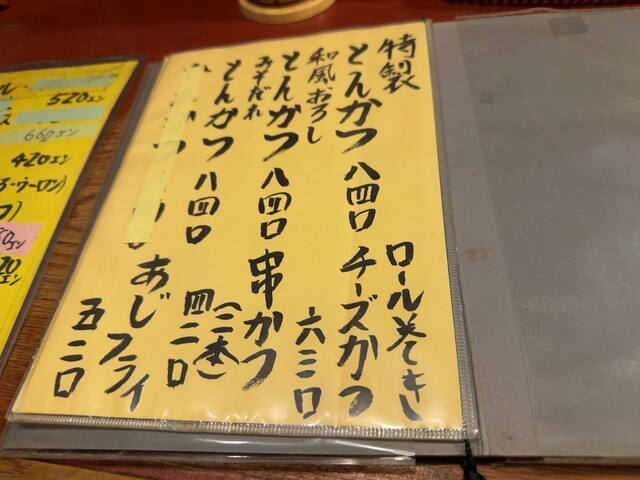 特製
とんかつ 八四〇
和風おろし
とんかつ 八四〇
みそだれ
とんかつ 八四〇
ロール巻き
チーズかつ
六三〇
串かつ
(二本)
四二〇
あじフライ
五二〇
520エン
660エン
420エン
ウーロン)